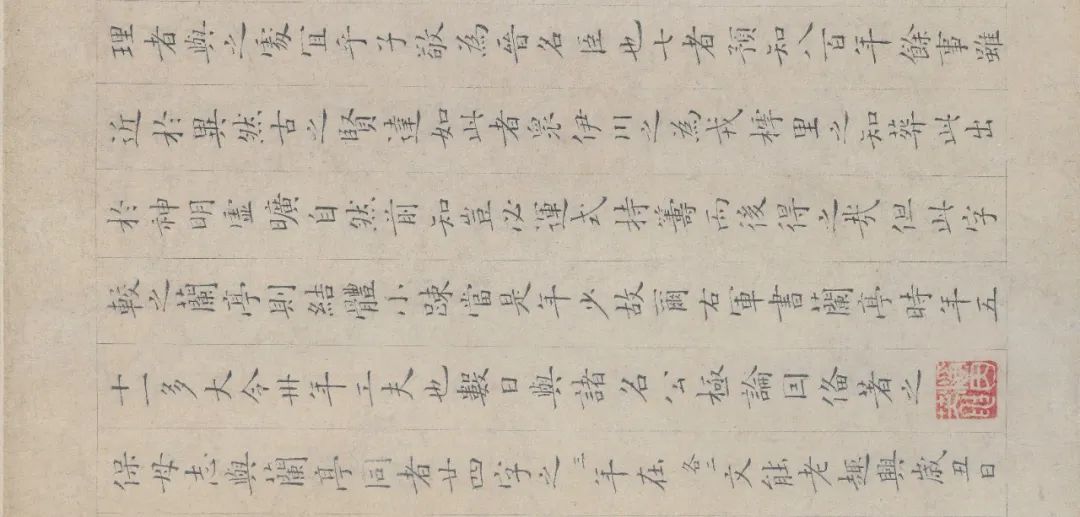 理者與之處宜乎子敬為晉名臣也七者預知八百年餘事雖
近於異然古之賢達如此者衆伊川之為戎樗里之知葬此出
於神明虛曠自然前知豈必運式持籌而後得之哉但此字
較之蘭亭則結體小踈當是年少故爾右軍書蘭亭時年五
十一多大令卅年工夫也數日與諸名公極論因備著之
保母志與蘭亭同者廿四字之三年在各三文能老趣興歲丑日